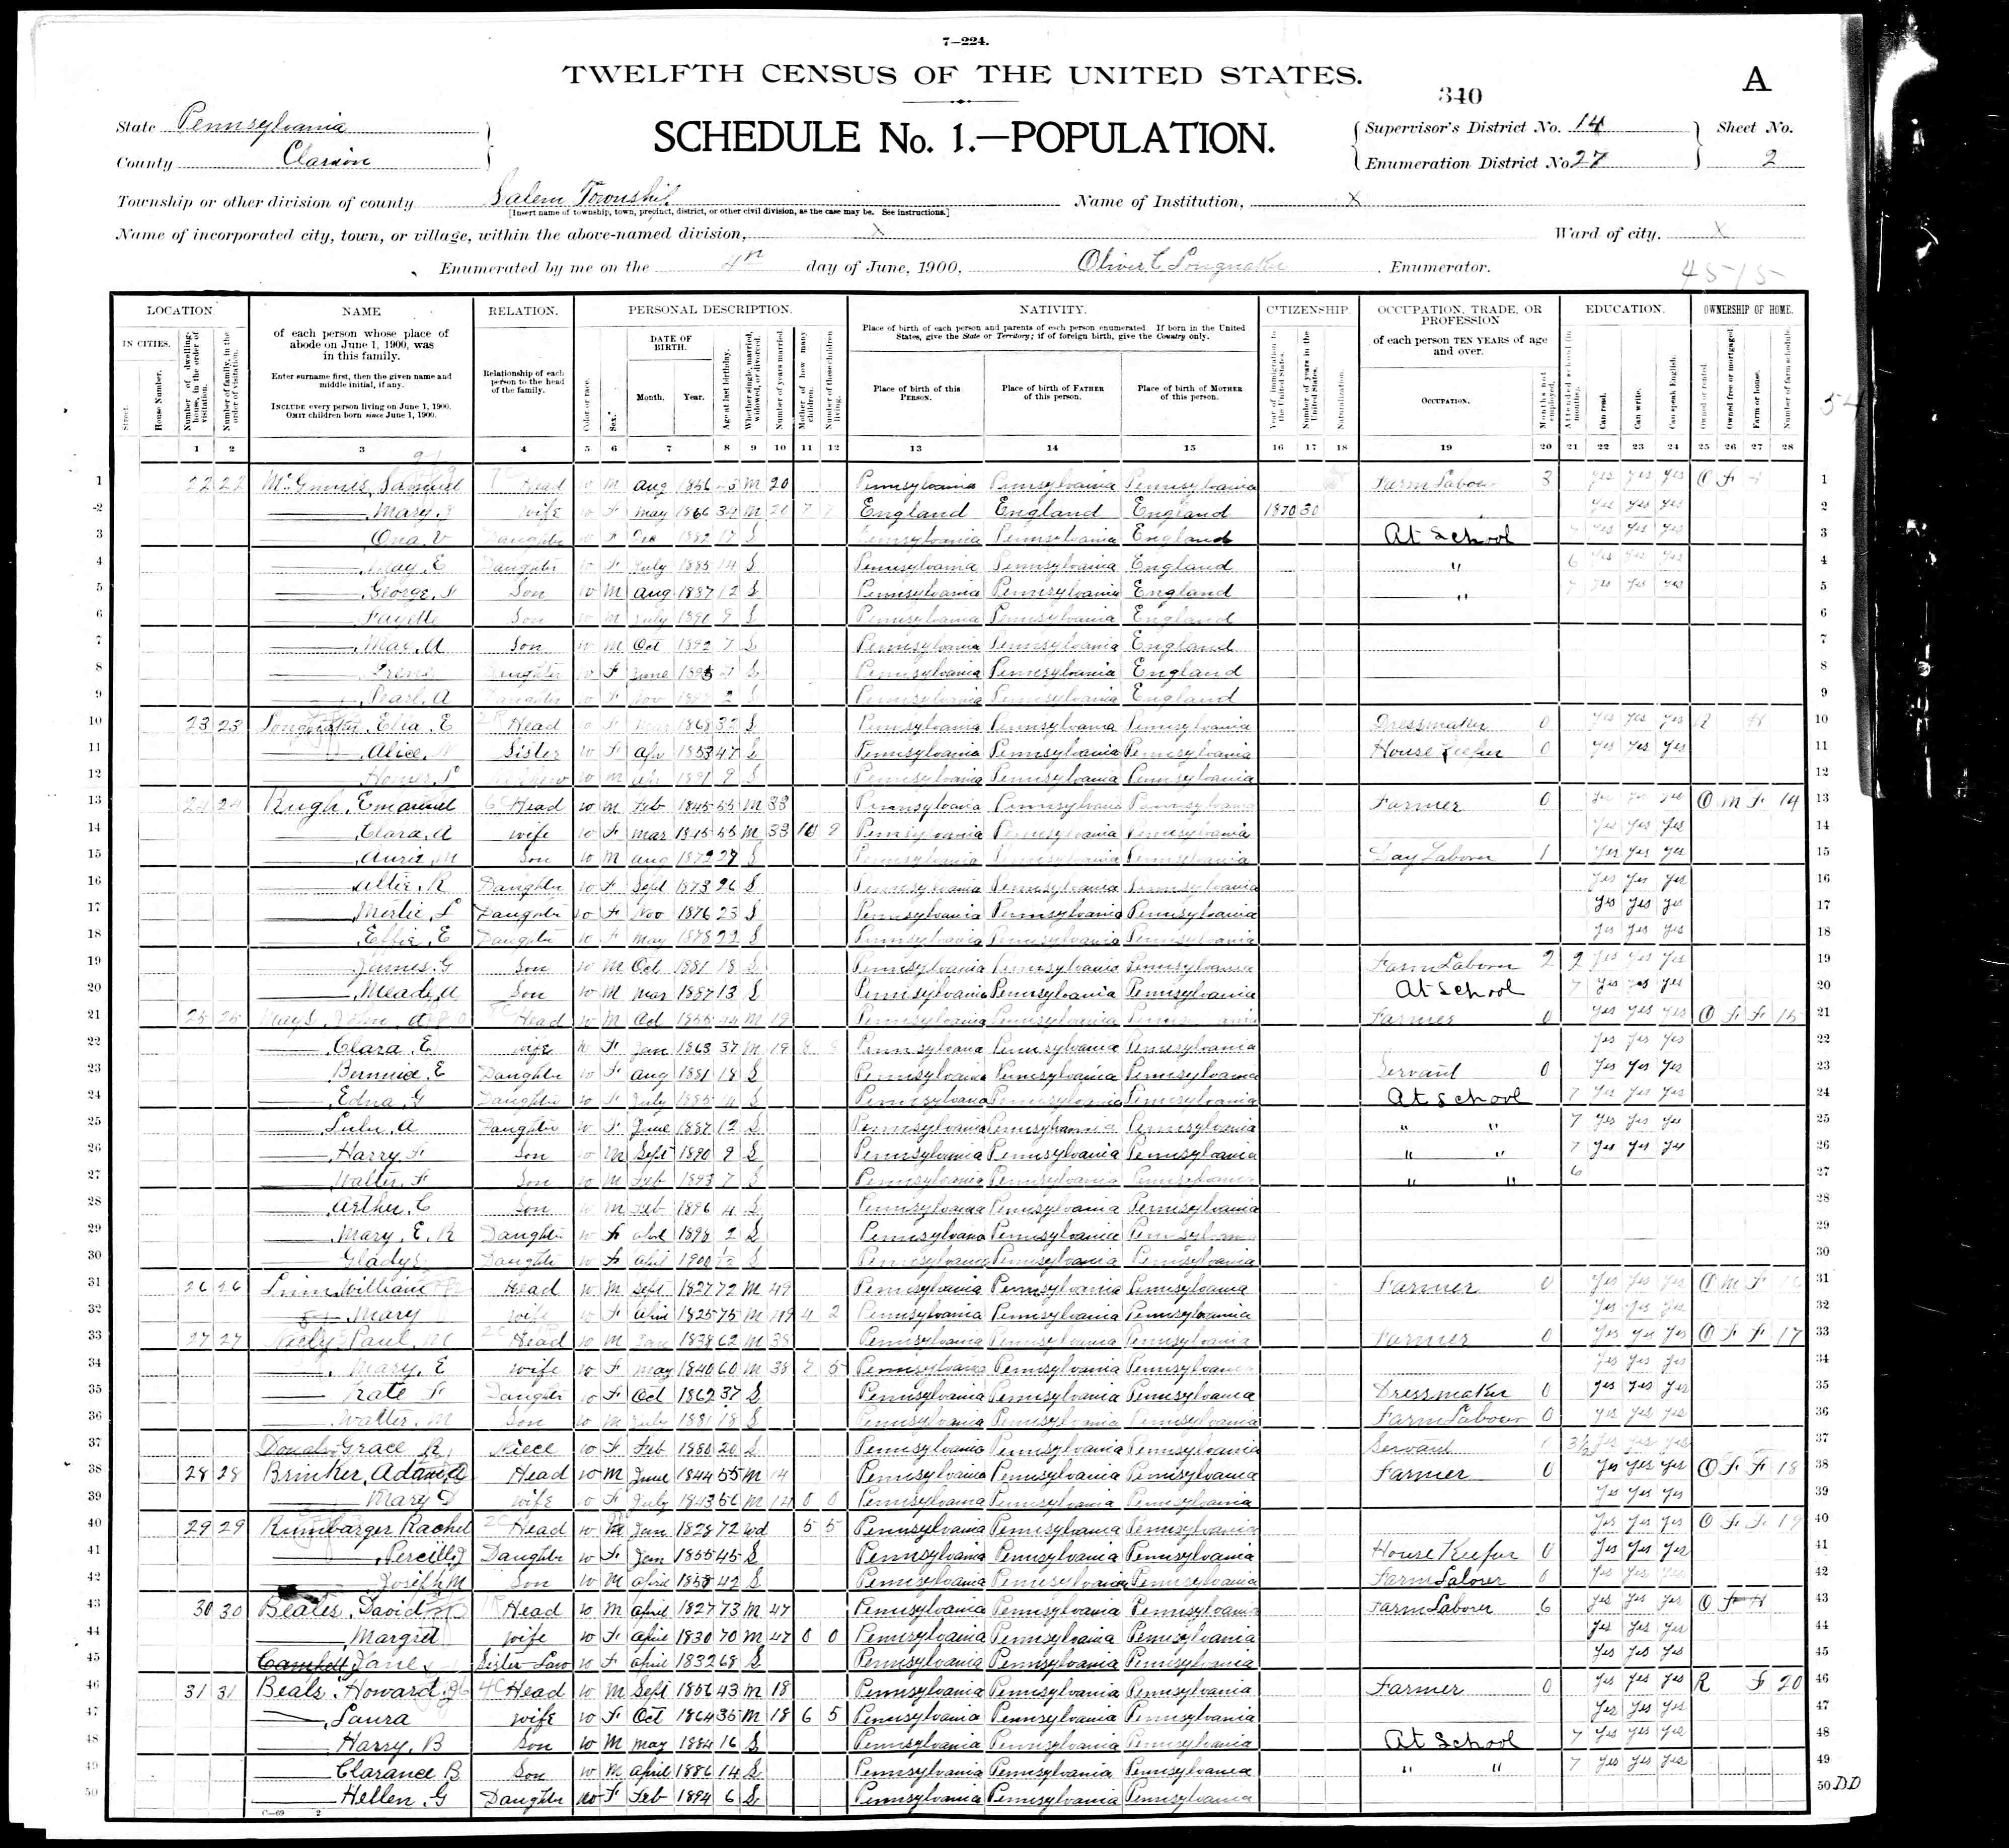 7—224.
TWELFTH CENSUS OF THE UNITED STATES.
340 A
State Pennsylvania
County Clarion
SCHEDULE No. 1.—POPULATION.
Supervisor's District No. 14 Sheet No.
Enumeration District No 27 2
Township or other division of county Salem Township Name of Institution, X
[Insert name of township, town, precinct, district, or other civil division, as the case may be. See instructions.]
Name of incorporated city, town, or village, within the above-named division, X Ward of city, X
Enumerated by me on the 4th day of June, 1900, Oliver C Longnaker, Enumerator.
LOCATION. NAME RELATION. PERSONAL DESCRIPTION. NATIVITY. CITIZENSHIP. OCCUPATION, TRADE, OR PROFESSION EDUCATION. OWNERSHIP OF HOME.
IN CITIES. Street. House Number. Number of dwelling-house, in the order of visitation. Number of family, in the order of visitation.
of each person whose place of abode on June 1, 1900, was in this family.
Enter surname first, then the given name and middle initial, if any.
INCLUDE every person living on June 1, 1900. OMIT children born since June 1, 1900.
Relationship of each person to the head of the family.
Color or race. Sex. DATE OF BIRTH. Month. Year. Age at last birthday. Whether single, married, widowed, or divorced. Number of years married. Mother of how many children. Number of these children living.
Place of birth of each person and parents of each person enumerated. If born in the United States, give the State or Territory; if of foreign birth, give the Country only.
Place of birth of this PERSON. Place of birth of FATHER of this person. Place of birth of MOTHER of this person.
Year of immigration to the United States. Number of years in the United States. Naturalization.
of each person TEN YEARS of age and over. OCCUPATION. Months not employed.
Attended school (in months). Can read. Can write. Can speak English.
Owned or rented. Owned free or mortgaged. Farm or house. Number of farm schedule.
1 2 3 4 5 6 7 8 9 10 11 12 13 14 15 16 17 18 19 20 21 22 23 24 25 26 27 28
1 22 22 McGinnis, Samuel Head W M Aug 1856 M 20 Pennsylvania Pennsylvania Pennsylvania Farm Labor 3 yes yes yes O F 1
2 Mary, wife W F May 1866 34 M 20 7 7 England England England 1870 30 yes yes yes 2
3 Ona, V Daughter W F Dec 1882 17 S Pennsylvania Pennsylvania England At School yes yes yes 3
4 May, E Daughter W F July 1885 14 S Pennsylvania Pennsylvania England " 6 yes yes yes 4
5 George, Son W M Aug 1887 12 S Pennsylvania Pennsylvania England " 7 yes yes yes 5
6 Fayette Son W M July 1890 9 S Pennsylvania Pennsylvania England 6
7 Max, A Son W M Oct 1892 7 S Pennsylvania Pennsylvania England 7
8 Irene Daughter W F June 1895 S Pennsylvania Pennsylvania England 8
9 Pearl, A Daughter W F Nov 2 S Pennsylvania Pennsylvania England 9
10 23 23 Longnaker, Ella, E Head W F Mar 1868 32 S Pennsylvania Pennsylvania Pennsylvania Dressmaker 0 yes yes yes R H 10
11 Alice, N Sister W F Apr 1853 47 S Pennsylvania Pennsylvania Pennsylvania House Keeper 0 yes yes yes 11
12 Nephew W M Apr 1891 9 S Pennsylvania Pennsylvania Pennsylvania 12
13 24 24 Rugh, Emanuel Head W M Feb 1845 55 M 33 Pennsylvania Pennsylvania Pennsylvania Farmer 0 yes yes yes O M F 14 13
14 Clara, A wife W F Mar 1845 55 M 33 10 9 Pennsylvania Pennsylvania Pennsylvania yes yes yes 14
15 M Son W M Aug 1872 27 S Pennsylvania Pennsylvania Pennsylvania Day Laborer 1 yes yes yes 15
16 R Daughter W F Sept 1873 26 S Pennsylvania Pennsylvania Pennsylvania yes yes yes 16
17 Mertie, L Daughter W F Nov 1876 23 S Pennsylvania Pennsylvania Pennsylvania yes yes yes 17
18 Effie, E Daughter W F May 1878 22 S Pennsylvania Pennsylvania Pennsylvania yes yes yes 18
19 James, G Son W M Oct 1881 18 S Pennsylvania Pennsylvania Pennsylvania Farm Laborer 2 2 yes yes yes 19
20 Mead, A Son W M Mar 1887 13 S Pennsylvania Pennsylvania Pennsylvania At School 7 yes yes yes 20
21 25 25 Mays, John, A Head W M Oct 1855 44 M 19 Pennsylvania Pennsylvania Pennsylvania Farmer 0 yes yes yes O F F 15 21
22 Clara, E wife W F Jan 1863 37 M 19 8 8 Pennsylvania Pennsylvania Pennsylvania yes yes yes 22
23 E Daughter W F Aug 1881 18 S Pennsylvania Pennsylvania Pennsylvania Servant 0 yes yes yes 23
24 Edna, G Daughter W F July 1885 14 S Pennsylvania Pennsylvania Pennsylvania At School 7 yes yes yes 24
25 Lulu, A Daughter W F June 1887 12 S Pennsylvania Pennsylvania Pennsylvania " " 7 yes yes yes 25
26 Harry, F Son W M Sept 1890 9 S Pennsylvania Pennsylvania Pennsylvania " " 7 yes yes yes 26
27 Walter, F Son W M Feb 1893 7 S Pennsylvania Pennsylvania Pennsylvania " " 6 27
28 Arthur, C Son W M Feb 1896 4 S Pennsylvania Pennsylvania Pennsylvania 28
29 Mary, E, R Daughter W F Apl 1898 2 S Pennsylvania Pennsylvania Pennsylvania 29
30 Gladys Daughter W F Apl 1900 S Pennsylvania Pennsylvania Pennsylvania 30
31 26 26 Linn, William Head W M Sept 1827 72 M 49 Pennsylvania Pennsylvania Pennsylvania Farmer 0 yes yes yes O M F 31
32 Mary wife W F April 1825 75 M 49 4 2 Pennsylvania Pennsylvania Pennsylvania yes yes yes 32
33 27 27 Neely, Paul, Mc Head W M Jan 1838 62 M 38 Pennsylvania Pennsylvania Pennsylvania Farmer 0 yes yes yes O F F 17 33
34 Mary, E wife W F May 1840 60 M 38 7 5 Pennsylvania Pennsylvania Pennsylvania yes yes yes 34
35 Kate F Daughter W F Oct 1862 37 S Pennsylvania Pennsylvania Pennsylvania Dressmaker 0 yes yes yes 35
36 Walter, M Son W M July 1881 18 S Pennsylvania Pennsylvania Pennsylvania Farm Labour 0 yes yes yes 36
37 Grace R, Niece W F Feb 1880 20 S Pennsylvania Pennsylvania Pennsylvania Servant 3½ yes yes yes 37
38 28 28 Brinker, Adam, A Head W M June 1844 55 M 14 Pennsylvania Pennsylvania Pennsylvania Farmer 0 yes yes yes O F F 18 38
39 Mary D wife W F July 1843 56 M 14 0 0 Pennsylvania Pennsylvania Pennsylvania yes yes yes 39
40 29 29 Rumbarger Rachel Head W Jan 1828 72 Wd 5 5 Pennsylvania Pennsylvania Pennsylvania yes yes yes O F F 19 40
41 Daughter W F Jan 1855 45 S Pennsylvania Pennsylvania Pennsylvania House Keeper 0 yes yes yes 41
42 Joseph M Son W M April 1858 42 S Pennsylvania Pennsylvania Pennsylvania Farm Laborer 0 yes yes yes 42
43 30 30 Beales, David Head W M April 1827 73 M 47 Pennsylvania Pennsylvania Pennsylvania Farm Laborer 6 yes yes yes O F H 43
44 Margret wife W F April 1830 70 M 47 0 0 Pennsylvania Pennsylvania Pennsylvania yes yes yes 44
45 Campbell, Jane Sister Law W F April 1832 68 S Pennsylvania Pennsylvania Pennsylvania yes yes yes 45
46 31 31 Beals, Howard Head W M Sept 1856 43 M 18 Pennsylvania Pennsylvania Pennsylvania Farmer 0 yes yes yes R F 20 46
47 Laura wife W F Oct 1864 35 M 18 6 5 Pennsylvania Pennsylvania Pennsylvania yes yes yes 47
48 Harry, B Son W M May 1884 16 S Pennsylvania Pennsylvania Pennsylvania At School 7 yes yes yes 48
49 Clarance B Son W M April 1886 14 S Pennsylvania Pennsylvania Pennsylvania " " 7 yes yes yes 49
50 Hellen, G Daughter W F Feb 1894 6 S Pennsylvania Pennsylvania Pennsylvania 50 DD
C—69 2